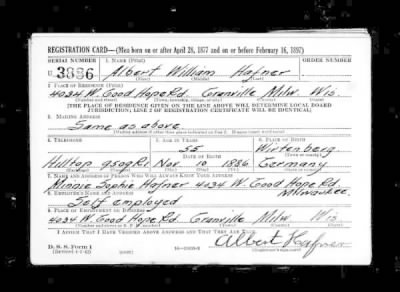 REGISTRATION CARD—(Men born on or after April 28, 1877 and on or before February 16, 1897)
SERIAL NUMBER 1. NAME (Print) ORDER NUMBER
U 3886 Albert William Hafner
(First) (Middle) (Last)
2. PLACE OF RESIDENCE (Print)
4034 W. Good Hope Rd. Granville Milw. Wis.
(Number and street) (Town, township, village, or city) (County) (State)
[THE PLACE OF RESIDENCE GIVEN ON THE LINE ABOVE WILL DETERMINE LOCAL BOARD
JURISDICTION; LINE 2 OF REGISTRATION CERTIFICATE WILL BE IDENTICAL]
3. MAILING ADDRESS
Same as above
4. TELEPHONE 5. AGE IN YEARS 6. PLACE OF BIRTH
55 Wirtenberg
DATE OF BIRTH (Town or county)
Hilltop Nov 10 1886 Germany
7. NAME AND ADDRESS OF PERSON WHO WILL ALWAYS KNOW YOUR ADDRESS
Minnie Sophie Hafner 4034 W. Good Hope Rd.
Milwaukee
8. EMPLOYER'S NAME AND ADDRESS
Self employed
9. PLACE OF EMPLOYMENT OR BUSINESS
4034 W. Good Hope Rd. Granville Milw Wis
I AFFIRM THAT I HAVE VERIFIED ABOVE ANSWERS AND THAT THEY ARE TRUE.
D. S. S. Form 1
Albert Hafner